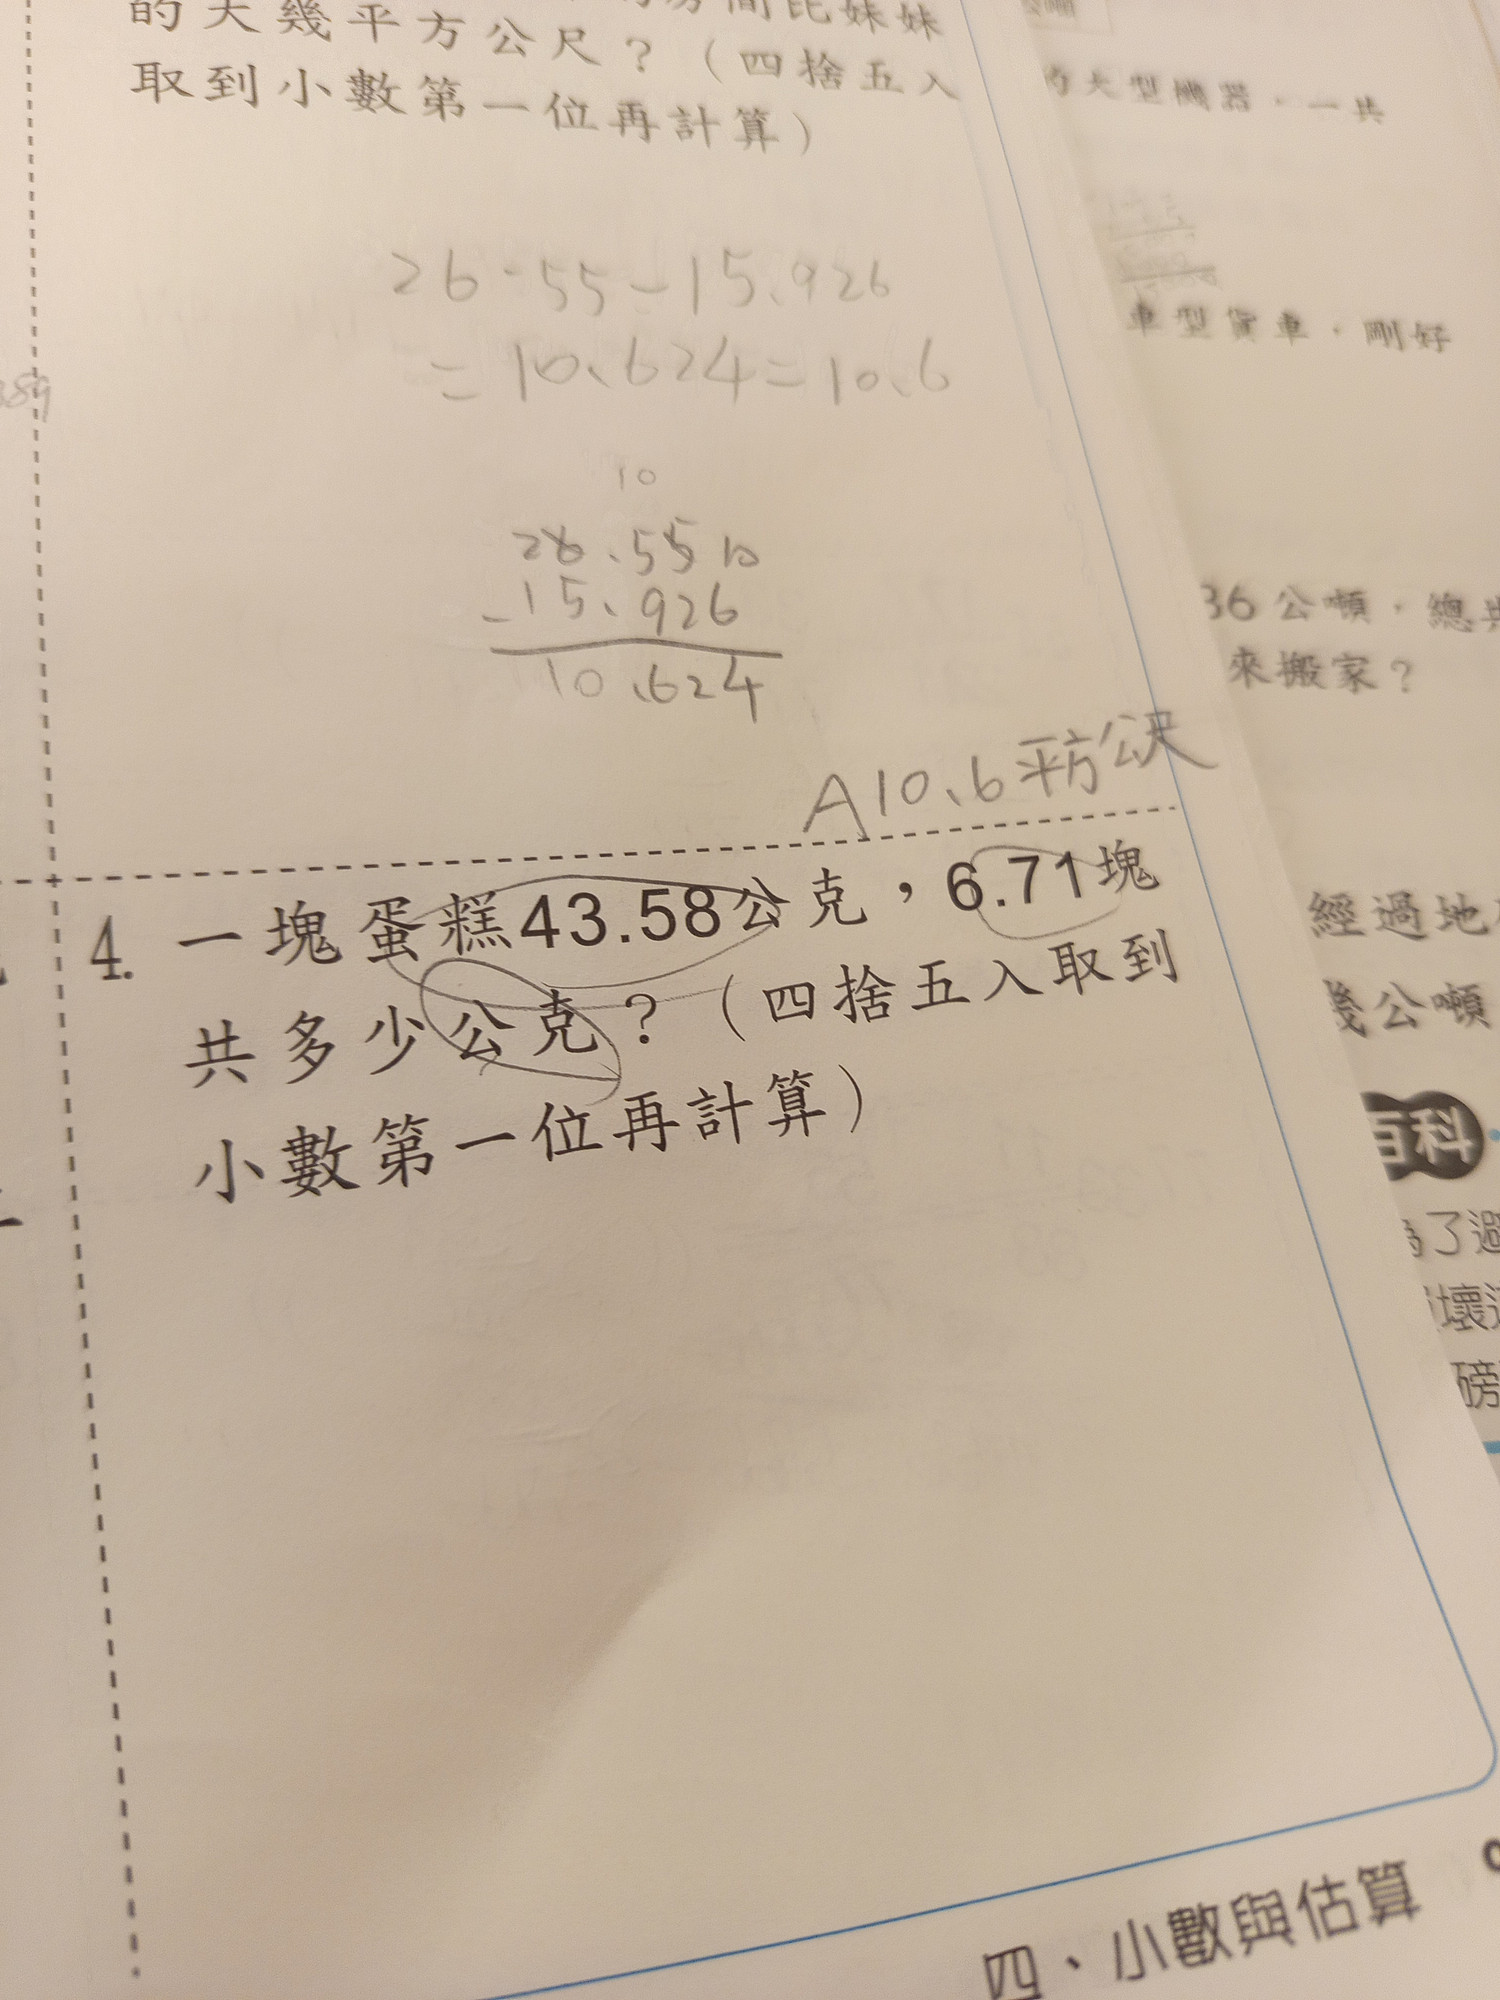 的大幾平方公尺？（四捨五入
取到小數第一位再計算）
26.55-15.926
=10.624=10.6
10
26.55 10
-15.926
10.624
A10.6平方公尺
4. 一塊蛋糕43.58公克，6.71塊
共多少公克？（四捨五入取到
小數第一位再計算）
四、小數與估算
89
的大型機器，一共
車型貨車，剛好
36公噸，總共
來搬家？
經過地
幾公噸
百科
為了避
壞
磅